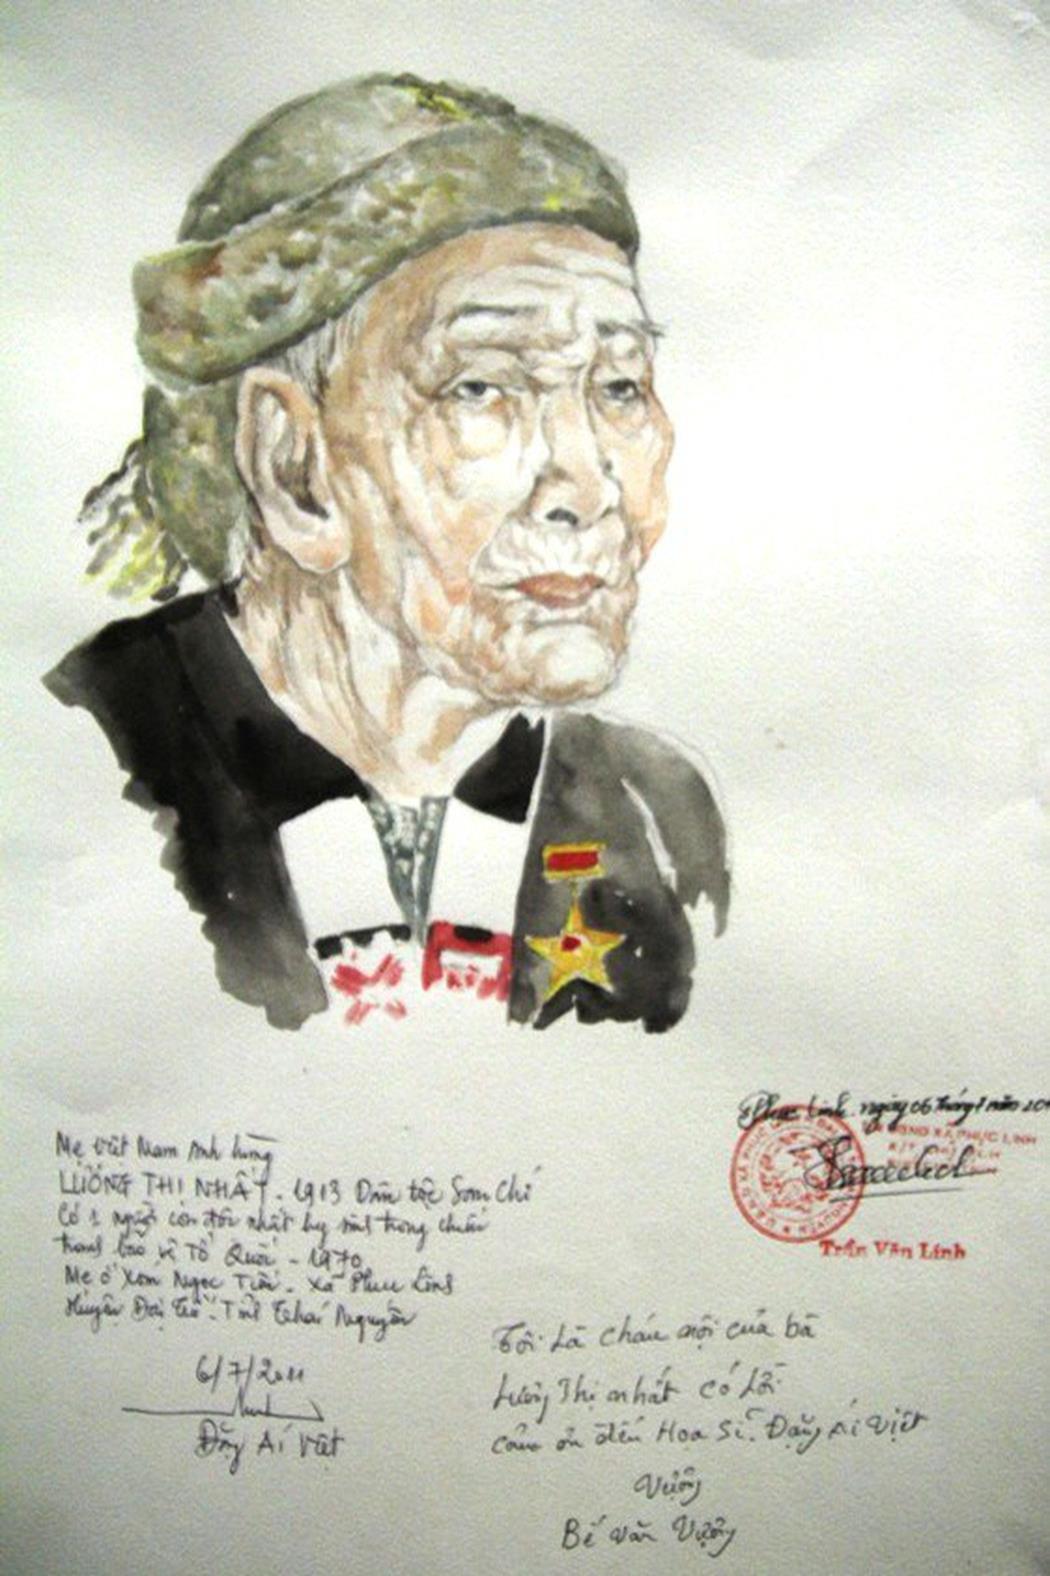 Mẹ Việt Nam Anh hùng
LƯƠNG THỊ NHẤT - 1913 Dân tộc Sơn Chí
Có 1 người con độc nhất hy sinh trong chiến
tranh bảo vệ Tổ Quốc - 1970
Mẹ ở Xóm Ngọc Tiến. Xã Phúc Linh
Huyện Đại Từ. Tỉnh Thái Nguyên
6/7/2011
Đặng Ái Việt
Phúc Linh, ngày 06 tháng 7 năm 20
XÃ PHỤC LINH
Trần Văn Linh
Tôi Là cháu nội của bà
Lương Thị nhất có Lời
cảm ơn đến Hoa Sĩ. Đặng Ái Việt
Vượng
Bế Văn Vượng